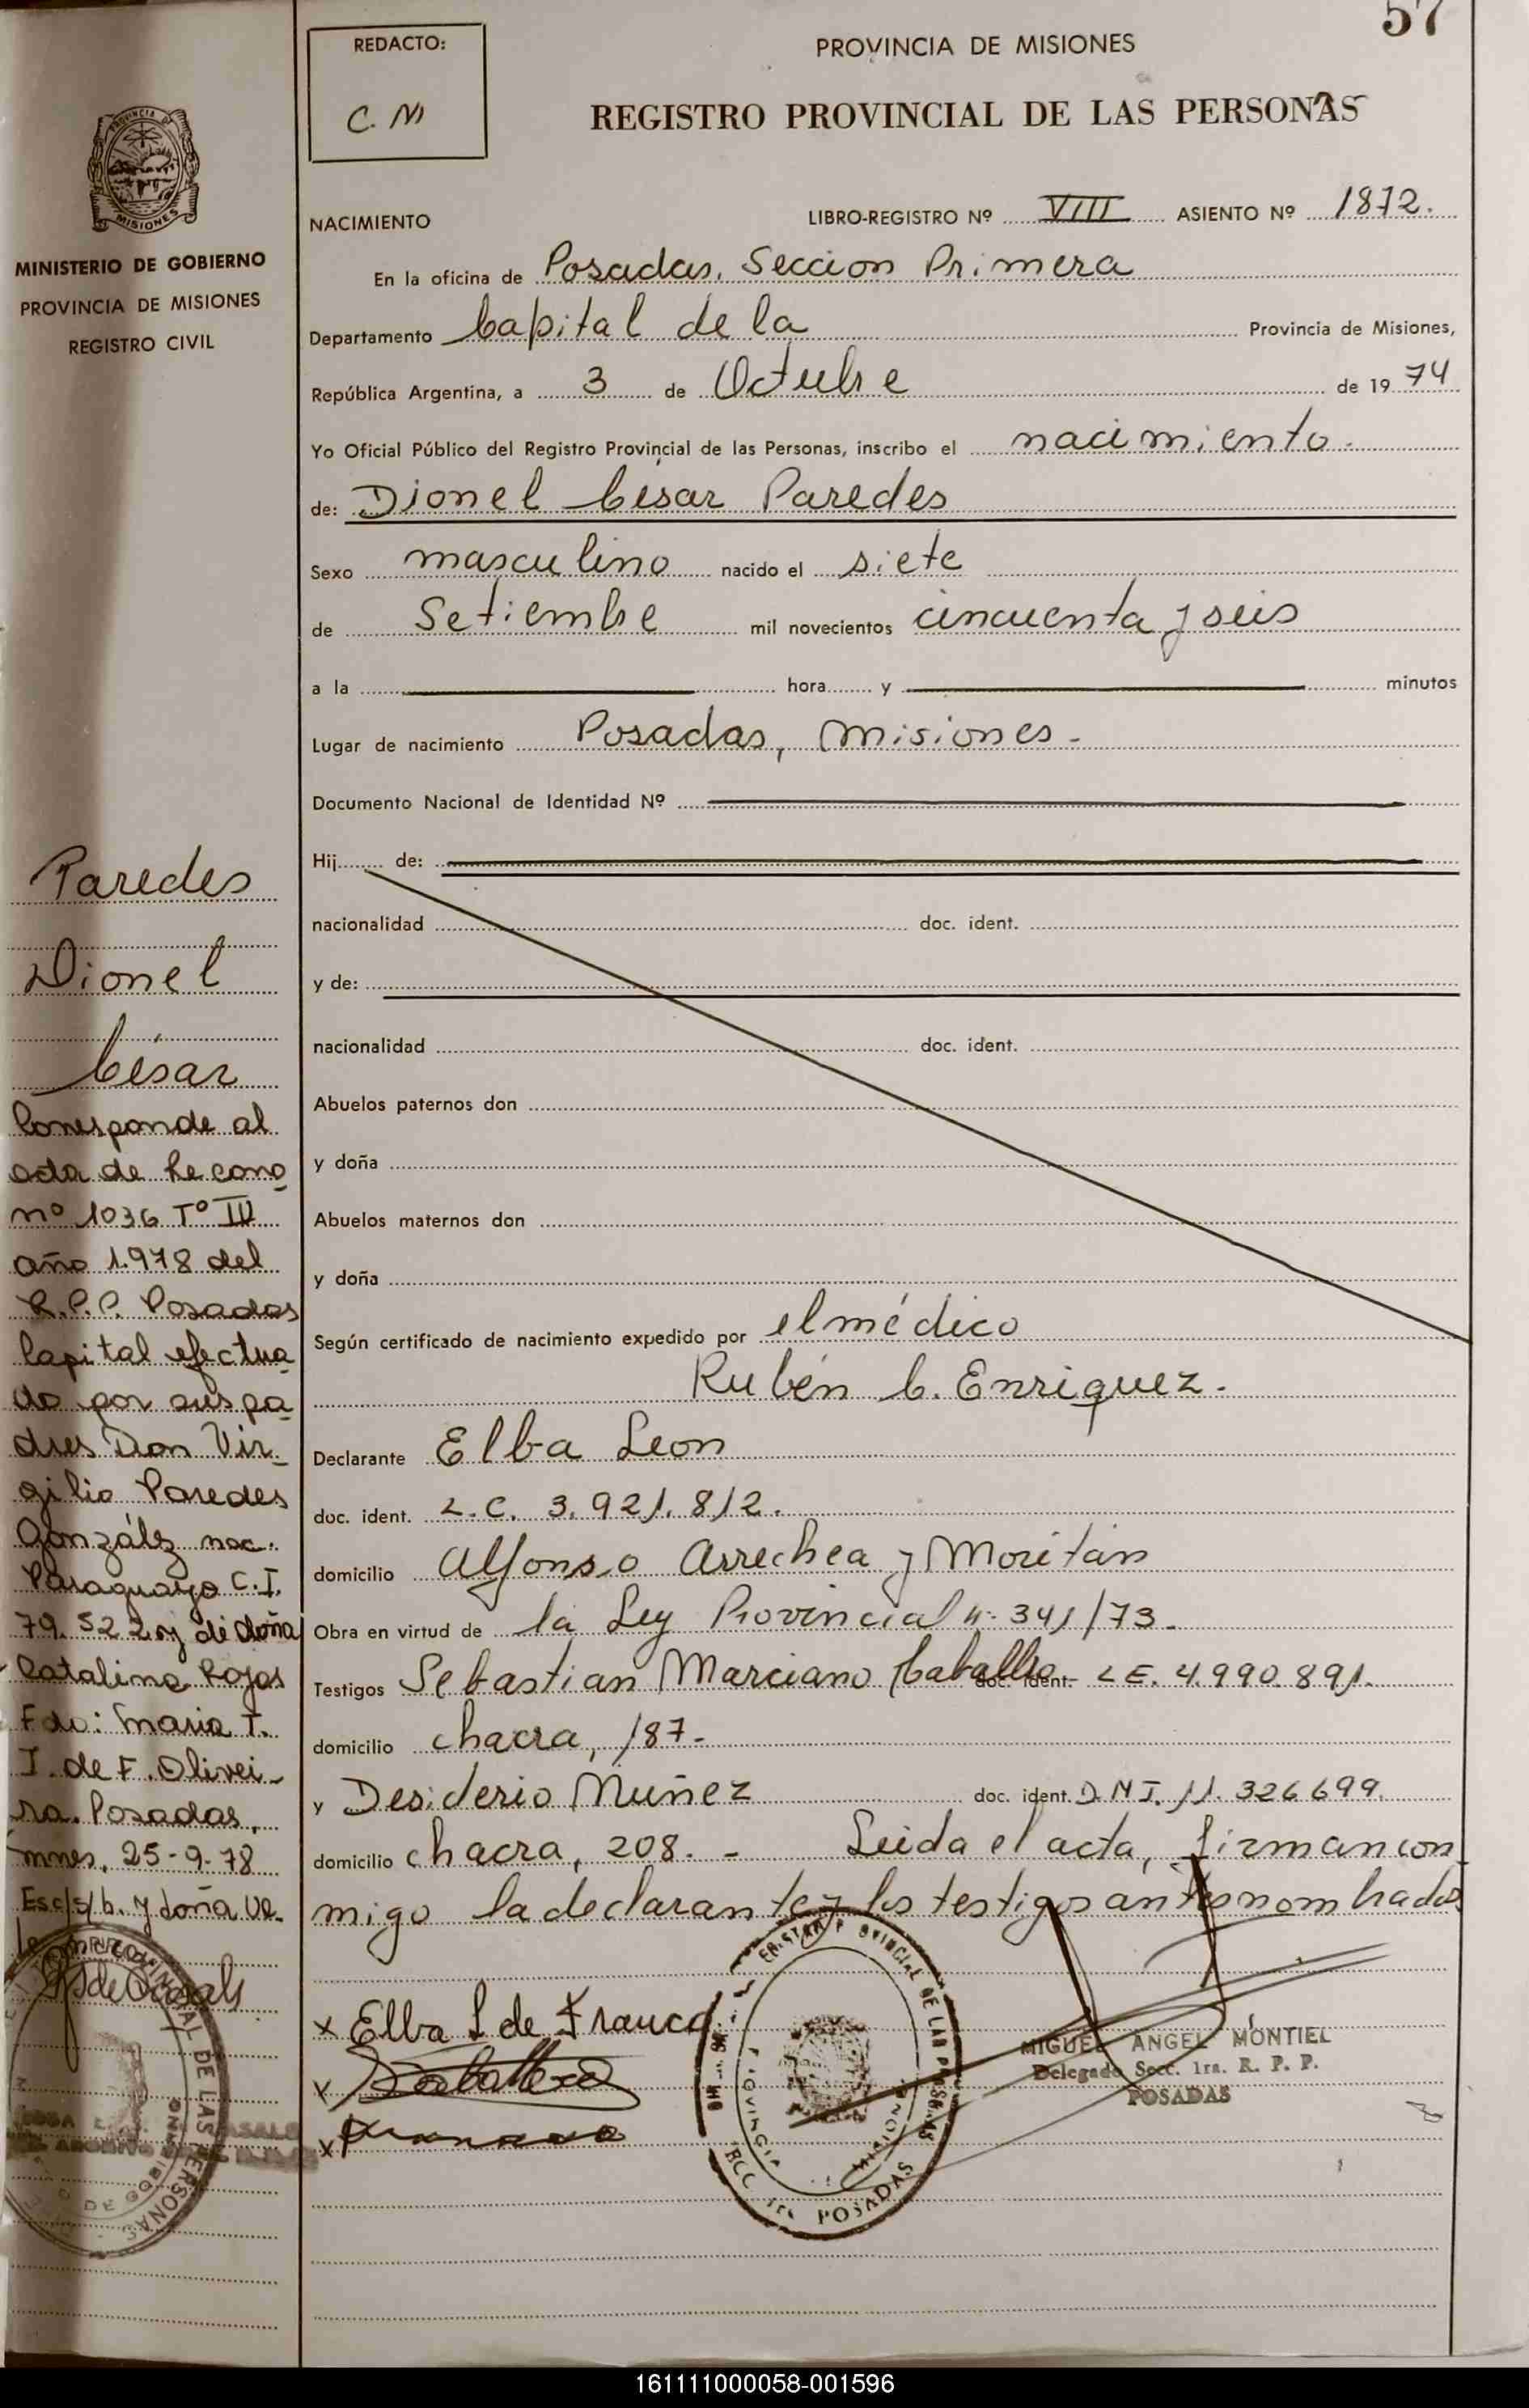 57
REDACTO:
C. M
PROVINCIA DE MISIONES
REGISTRO PROVINCIAL DE LAS PERSONAS
PROVINCIA D
MISIONES
MINISTERIO DE GOBIERNO
PROVINCIA DE MISIONES
REGISTRO CIVIL
NACIMIENTO
LIBRO-REGISTRO Nº VIII ASIENTO Nº 1872.
En la oficina de Posadas. Seccion Primera
Departamento Capital de la Provincia de Misiones,
República Argentina, a 3 de Octubre de 1974
Yo Oficial Público del Registro Provincial de las Personas, inscribo el nacimiento.
de: Dionel César Paredes
Sexo masculino nacido el siete
de Setiembre mil novecientos cincuenta y seis
a la hora y minutos
Lugar de nacimiento Posadas, Misiones -
Documento Nacional de Identidad Nº
Hij de:
nacionalidad doc. ident.
y de:
nacionalidad doc. ident.
Abuelos paternos don
y doña
Abuelos maternos don
y doña
Según certificado de nacimiento expedido por el médico
Rubén C. Enriquez.
Declarante Elba Leon
doc. ident. L.C. 3.921.812.
domicilio Alfonso Arrechea y Moritán
Obra en virtud de la Ley Provincial n: 341/73.
Testigos Sebastian Marciano Caballero doc. ident. L E. 4.990.891.
domicilio chacra, 187.
y Desiderio Muñez doc. ident. D.N I. 11. 326 699.
domicilio chacra, 208. - Leida el acta, firman con
migo la declarante y los testigos antes nombrados
x Elba L de Franco
x Caballero
x
MIGUEL ANGEL MONTIEL
Delegado Secc. 1ra. R. P. P.
POSADAS
Paredes
Dionel
César
Corresponde al
acta de Recono
nº 1036 Tº III
año 1.978 del
R.P.P. Posadas
Capital efectua
do por sus pa
dres Don Vir-
gilio Paredes
González nac.
Paraguayo C.I.
79. 522 y de doña
Catalina Rojas
Fdo: Maria T.
I. de F. Olivei-
ra. Posadas,
mnes, 25-9-78
Esc/s/b. y doña
DE LAS PERSONAS
POSADAS
161111000058-001596